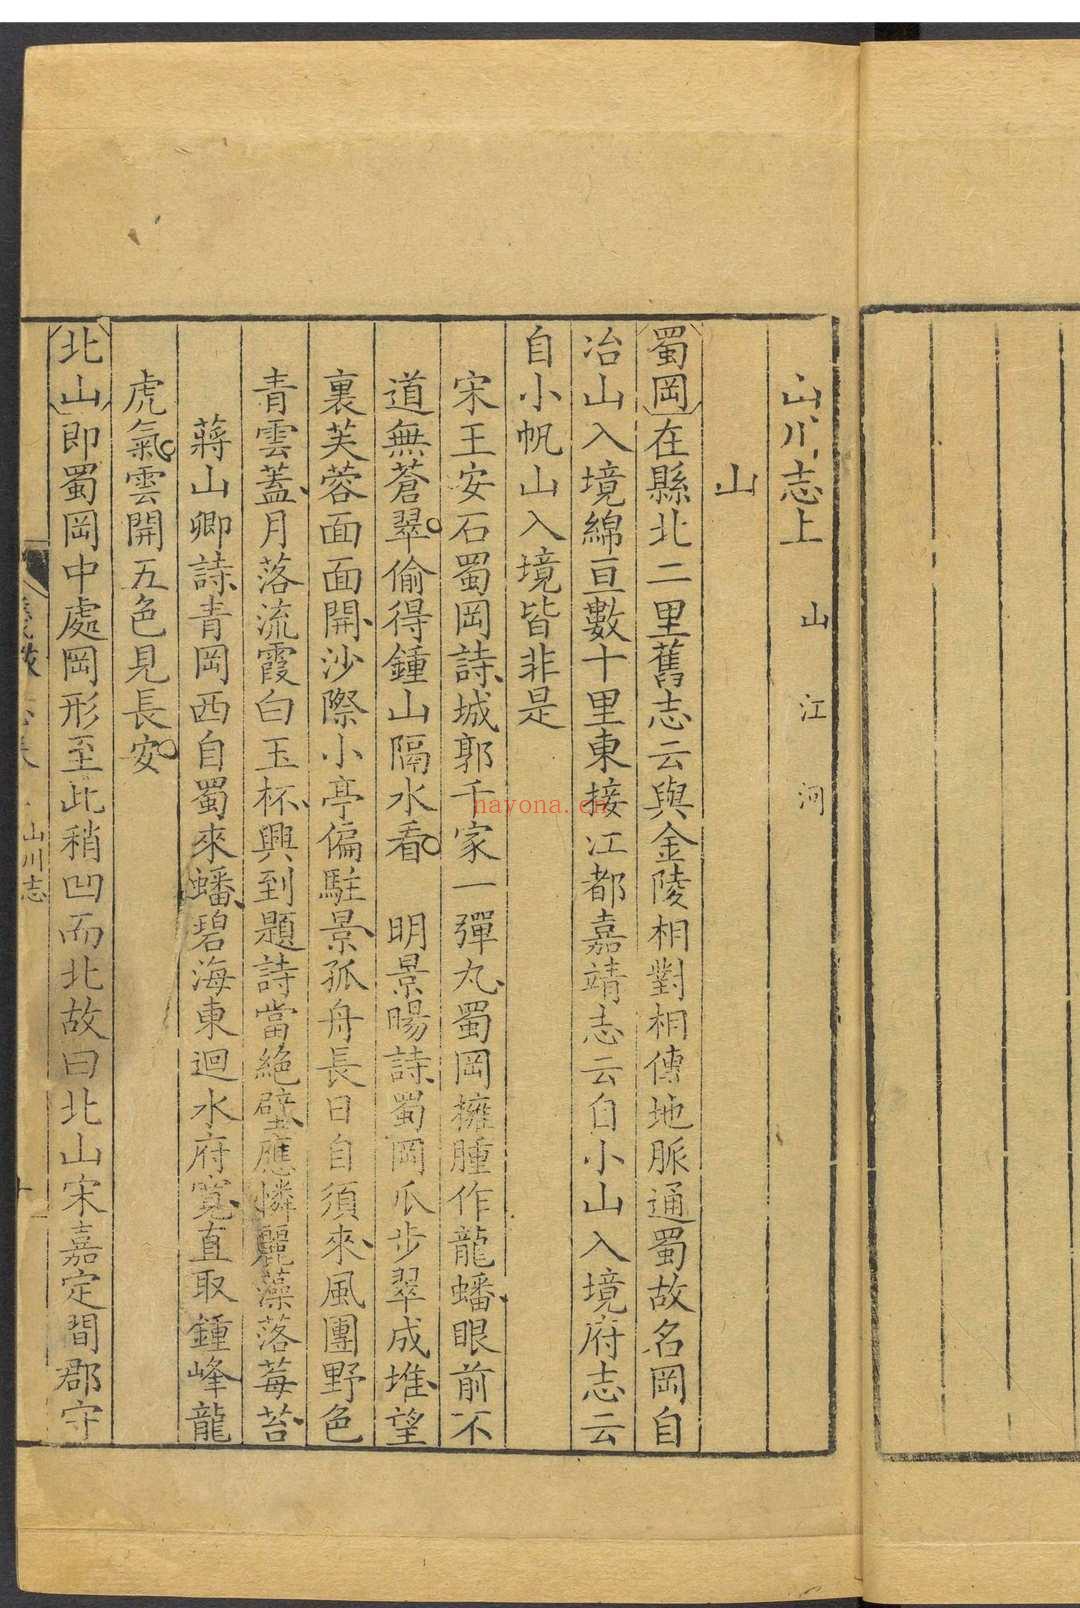 山川志上　山　江　河
山
蜀岡在縣北二里舊志云與金陵相對相傳地脈通蜀故名岡自
冶山入境綿亘數十里東接江都嘉靖志云自小山入境府志云
自小帆山入境皆非是
宋王安石蜀岡詩城郭千家一彈丸蜀岡擁腫作龍蟠眼前不
道無蒼翠偷得鍾山隔水看　明景暘詩蜀岡瓜步翠成堆望
裏芙蓉面面開沙際小亭偏駐景孤舟長日自須來風團野色
青雲蓋月落流霞白玉杯興到題詩當絕壁應憐麗藻落莓苔
蔣山卿詩青岡西自蜀來蟠碧海東迴水府寬直取鍾峰龍
虎氣雲開五色見長安
北山即蜀岡中處岡形至此稍凹而北故曰北山宋嘉定間郡守
山川志
nayona.cn